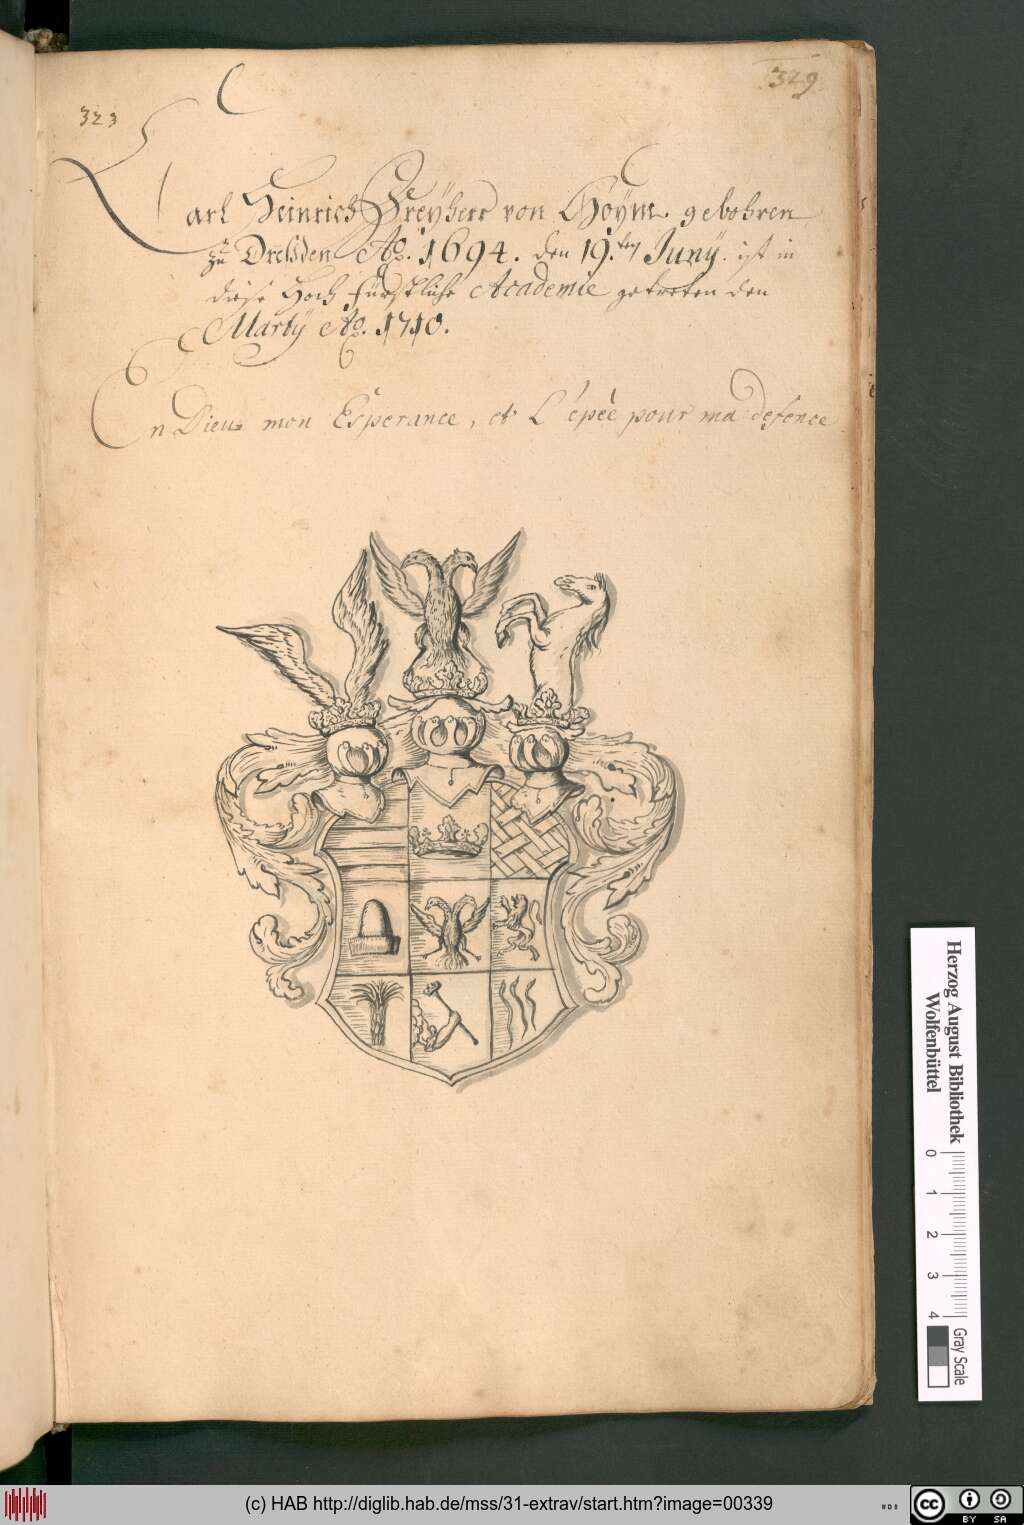 329
323
Carl Heinrich Freyherr von Hoÿm. gebohren
zu Dreßden Ao. 1694. den 19.ten Junÿ. ist in
diese Hoch fürstliche Academie getretten den
Martÿ Ao. 1710.
En Dieu mon Esperance, et L'épèe pour ma defence
Herzog August Bibliothek
Wolfenbüttel
0 1 2 3 4
Gray Scale
(c) HAB http://diglib.hab.de/mss/31-extrav/start.htm?image=00339
cc BY SA